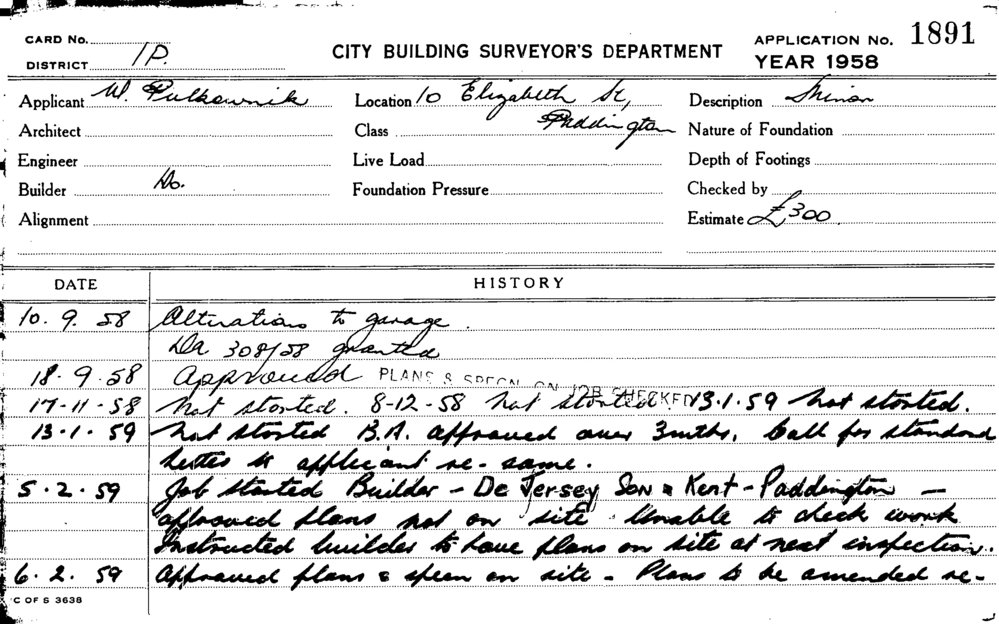 CARD No.
DISTRICT 1P.
CITY BUILDING SURVEYOR'S DEPARTMENT
APPLICATION No. 1891
YEAR 1958
Applicant W. Pulkownik
Location 10 Elizabeth St,
Paddington
Description Minor
Architect
Class
Nature of Foundation
Engineer
Live Load
Depth of Footings
Builder Do.
Foundation Pressure
Checked by
Alignment
Estimate £300
DATE HISTORY
10. 9. 58 Alterations to garage.
Da 308/58 granted
18. 9. 58 Approved PLANS & SPECN ON JOB CHECKED
17-11-58 Not started. 8-12-58 Not started. 13.1.59 Not started.
13.1.59 Not started B.A. approved over 3mths. Call for standard
letter to applicant re-same.
5.2.59 Job started Builder - De Jersey Son & Kent - Paddington -
approved plans not on site. Unable to check work
Instructed builder to have plans on site at next inspection.
6.2.59 Approved plans & specn on site - Plans to be amended re-
C OF S 3638